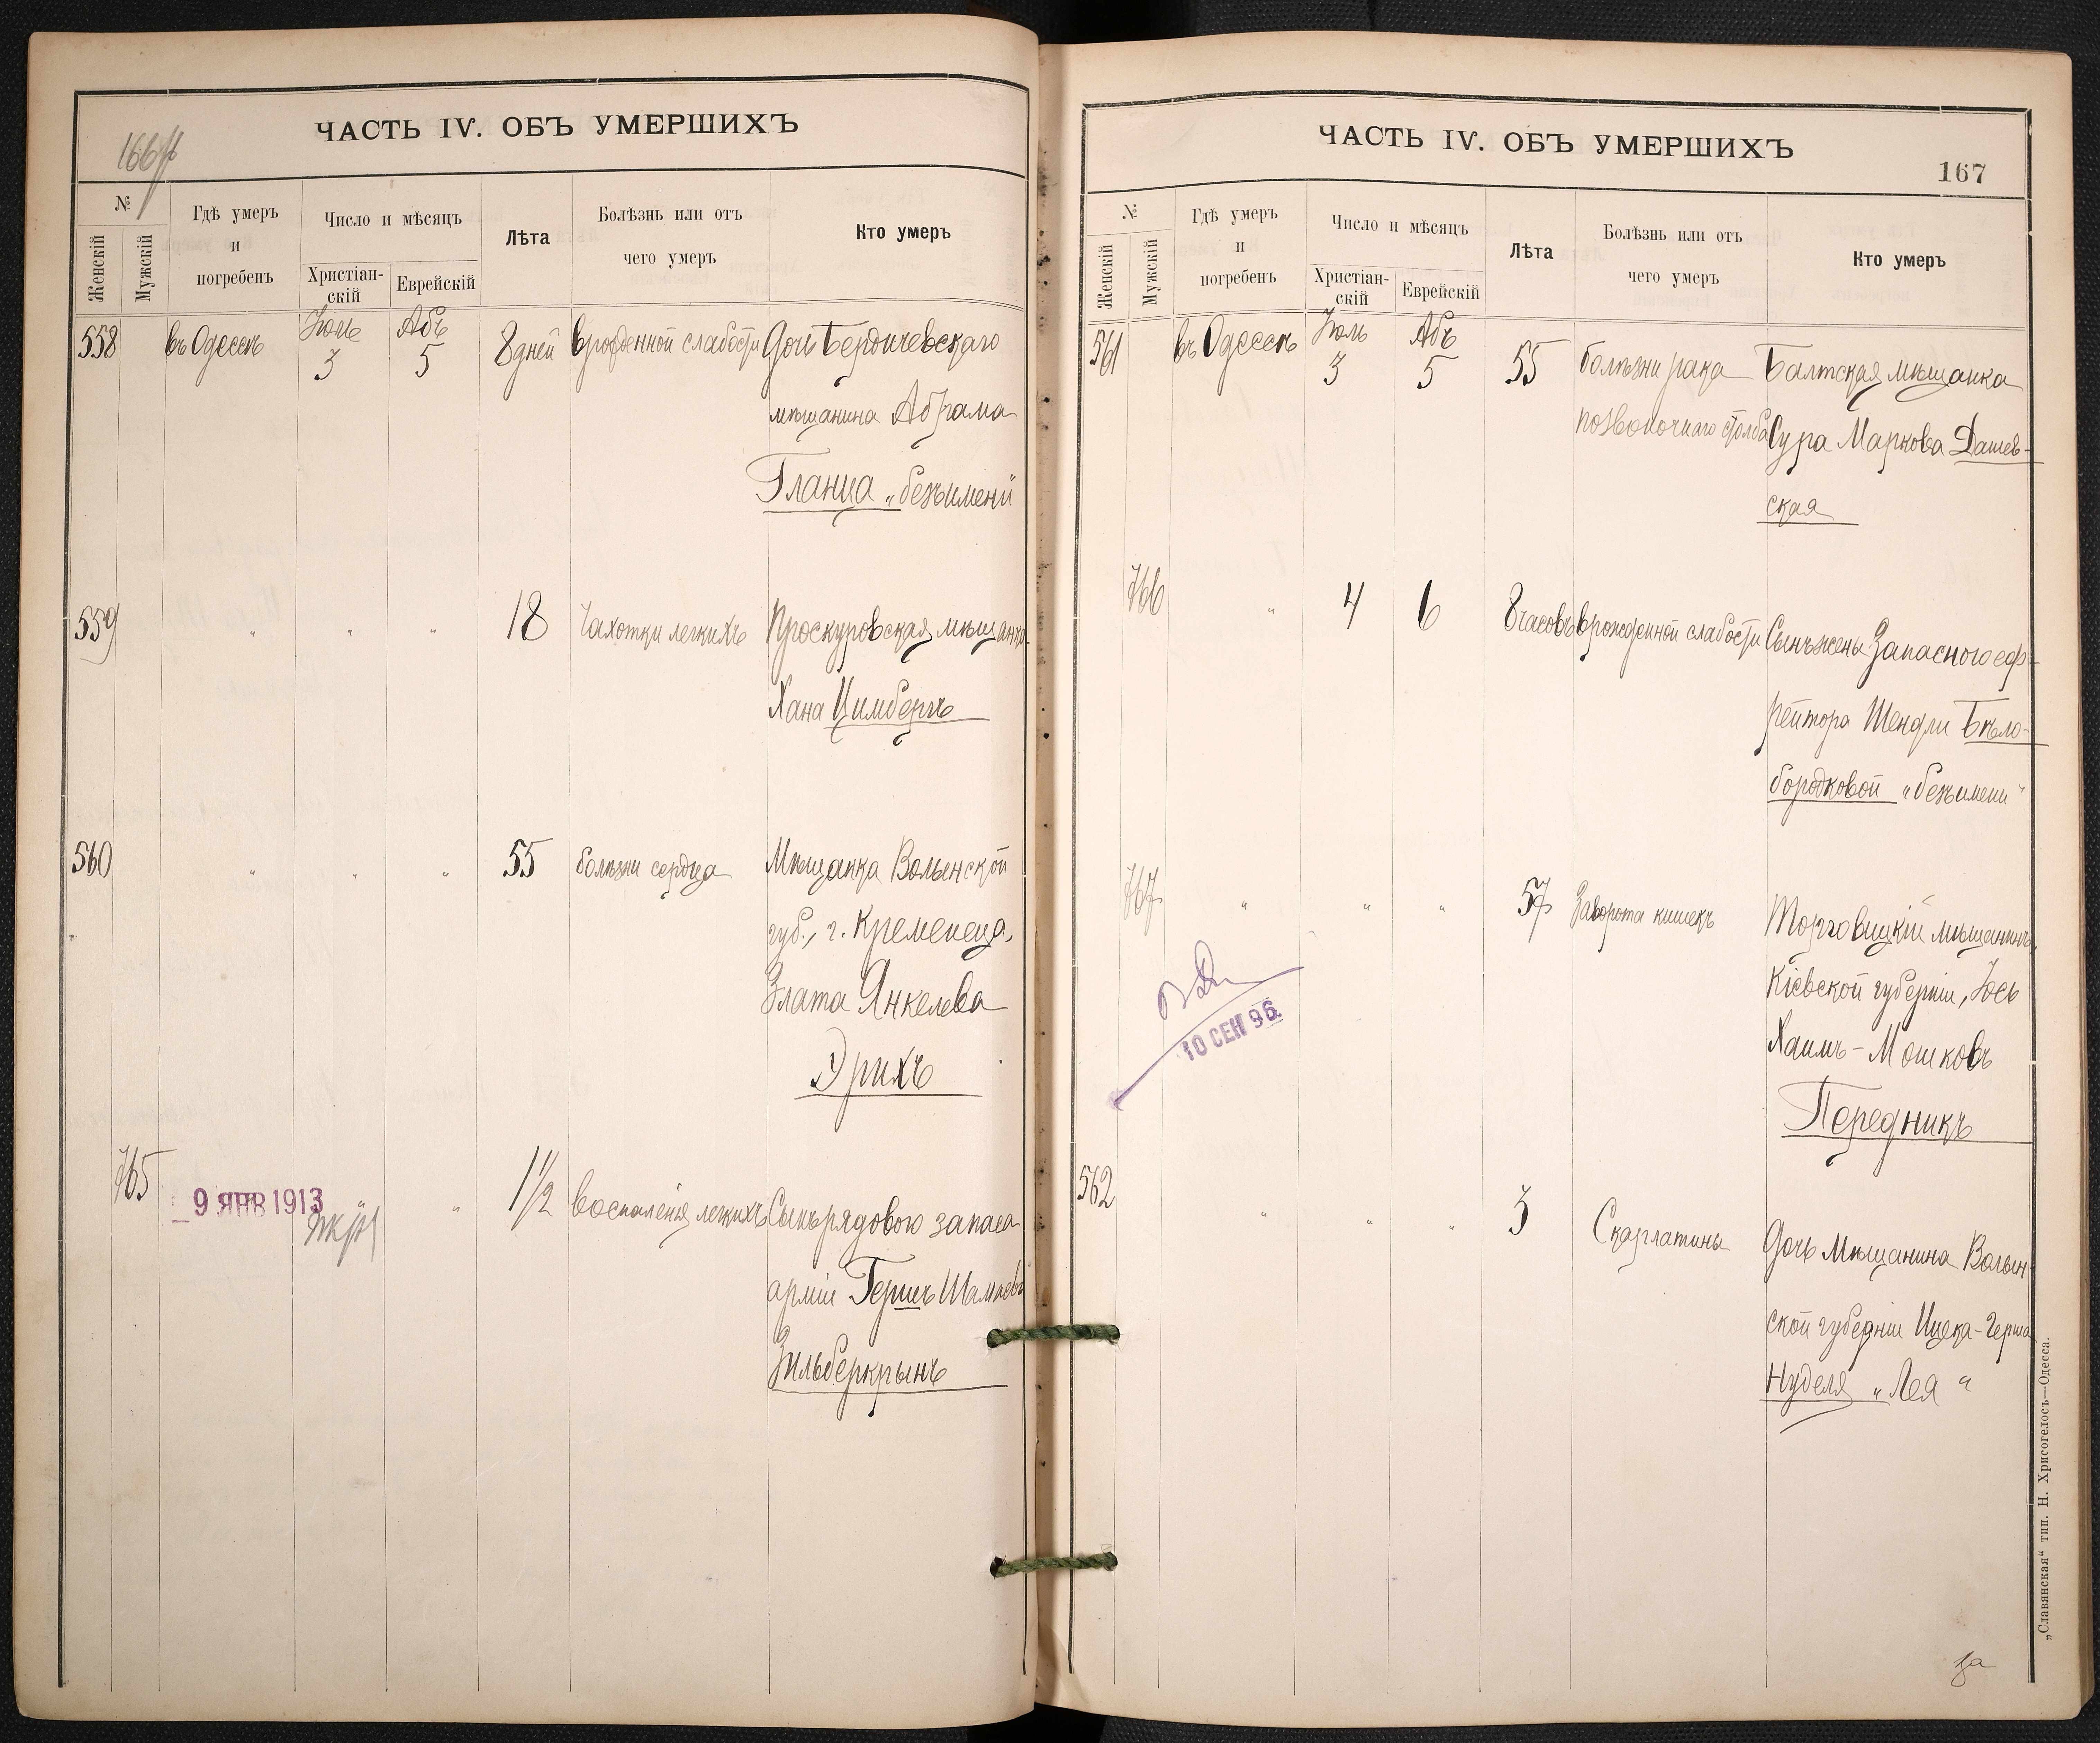 ЧАСТЬ IV. ОБЪ УМЕРШИХЪ
166
№
Женскій
Мужскій
Гдѣ умеръ
и
погребенъ
Число и мѣсяцъ
Христіан-
скій
Еврейскій
Лѣта
Болѣзнь или отъ
чего умеръ
Кто умеръ
558 въ Одессѣ Іюль 3 Абъ 5 8 дней врожденной слабости Дочь Бердичевскаго
мѣщанина Абрама
Гланца „безъимени"
559 " " " 18 Чахотки легкихъ Проскуровская мѣщанка
Хана Цимбергъ
560 " " " 55 болѣзни сердца Мѣщанка Волынской
губ., г. Кременеца,
Злата Янкелева
Эрихъ
765 " " 1½ воспаленія легкихъ Сынъ рядового запаса
9 ЯНВ 1913
арміи Гершъ Шамаевъ
Зильберкрынъ
ЧАСТЬ IV. ОБЪ УМЕРШИХЪ
167
№
Женскій
Мужскій
Гдѣ умеръ
и
погребенъ
Число и мѣсяцъ
Христіан-
скій
Еврейскій
Лѣта
Болѣзнь или отъ
чего умеръ
Кто умеръ
561 въ Одессѣ Іюль 3 Абъ 5 55 болѣзни рака Балтская мѣщанка
позвоночнаго столба Сура Маркова Дашев-
ская
766 " 4 6 8 часовъ врожденной слабости Сынъ жены Запасного еф-
рейтора Шендли Бѣло-
бородковой „безъимени"
767 " " " 57 Заворота кишекъ Торговицкій мѣщанинъ,
Кіевской губерніи, Іось
Хаимъ-Мошковъ
Передникъ
10 СЕН 96
562 " " " 3 Скарлатины Дочь Мѣщанина Волын-
ской губерніи Ицека-Герша
Нуделя „Лея"
за
„Славянская" тип. Н. Хрисогелосъ—Одесса.